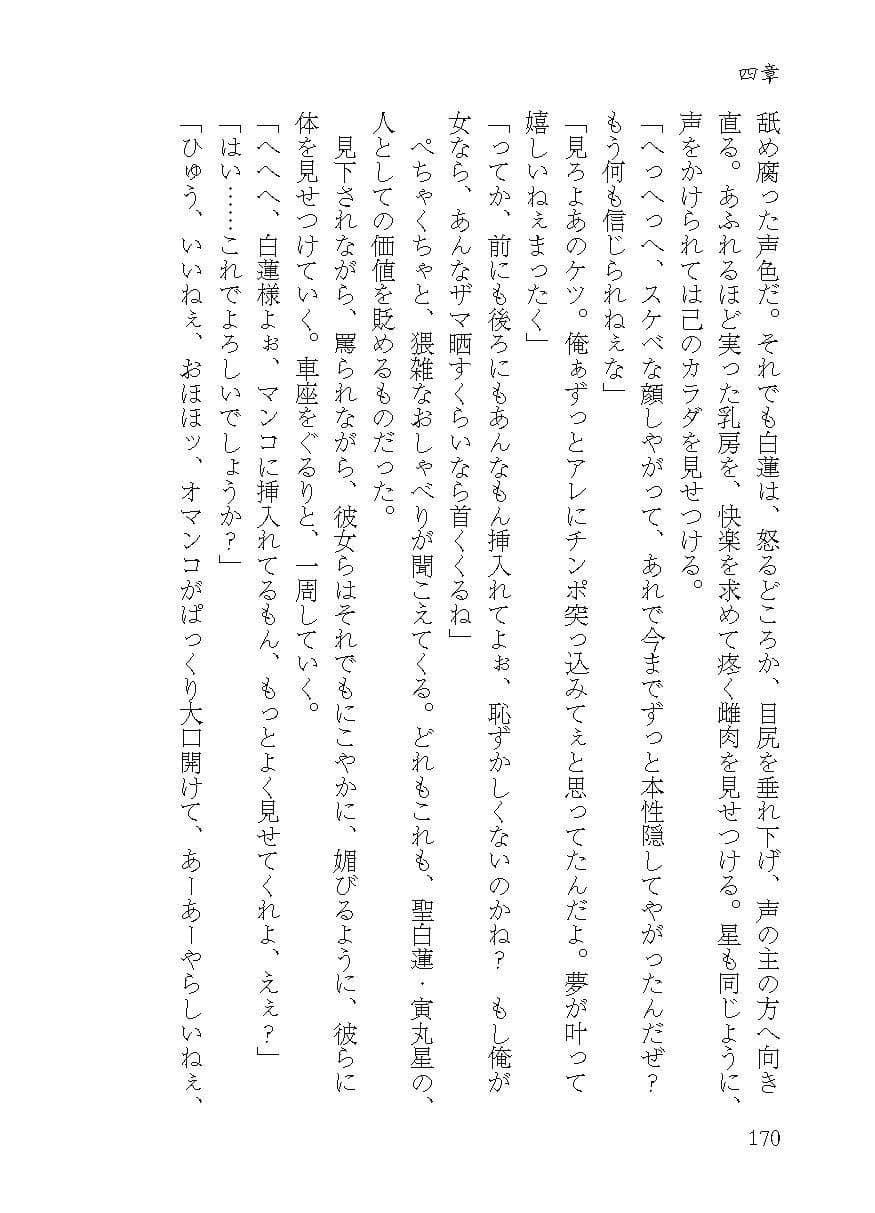 四章
舐め腐った声色だ。それでも白蓮は、怒るどころか、目尻を垂れ下げ、声の主の方へ向き
直る。あふれるほど実った乳房を、快楽を求めて疼く雌肉を見せつける。星も同じように、
声をかけられては己のカラダを見せつける。
「へっへっへ、スケベな顔しやがって、あれで今までずっと本性隠してやがったんだぜ？
もう何も信じられねぇな」
「見ろよあのケツ。俺ぁずっとアレにチンポ突っ込みてぇと思ってたんだよ。夢が叶って
嬉しいねぇまったく」
「ってか、前にも後ろにもあんなもん挿入れてよぉ、恥ずかしくないのかね？　もし俺が
女なら、あんなザマ晒すくらいなら首くくるね」
　ぺちゃくちゃと、猥雑なおしゃべりが聞こえてくる。どれもこれも、聖白蓮・寅丸星の、
人としての価値を貶めるものだった。
　見下されながら、罵られながら、彼女らはそれでもにこやかに、媚びるように、彼らに
体を見せつけていく。車座をぐるりと、一周していく。
「へへへ、白蓮様よぉ、マンコに挿入れてるもん、もっとよく見せてくれよ、えぇ？」
「はい……これでよろしいでしょうか？」
「ひゅう、いいねぇ、おほほッ、オマンコがぱっくり大口開けて、あーあーやらしいねぇ、
170